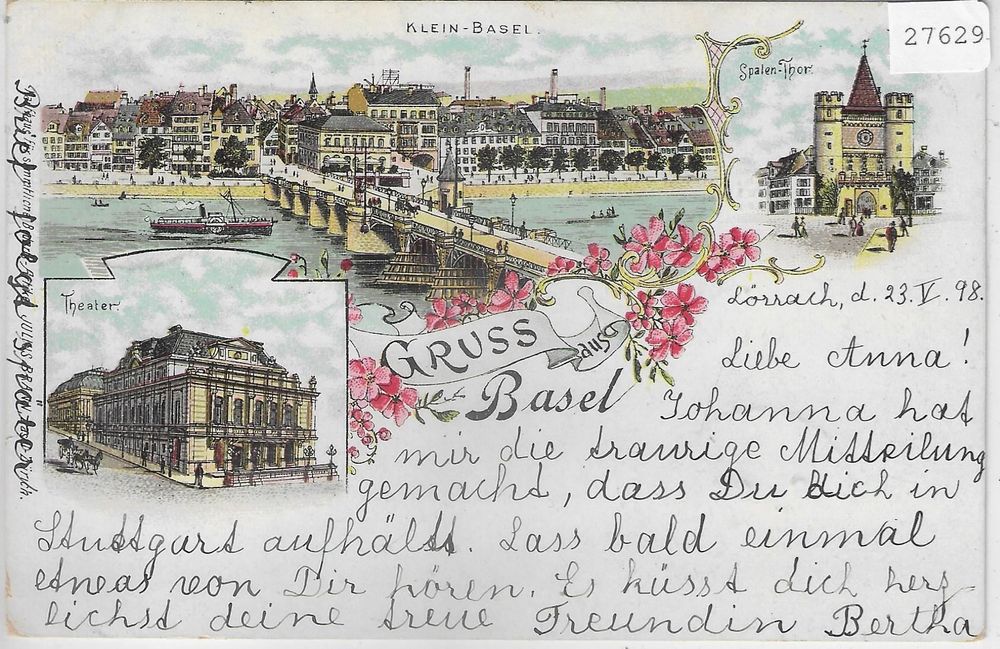 KLEIN-BASEL.
27629
Spalen-Thor.
Theater.
GRUSS
aus
Basel
Lörrach, d. 23. V. 98.
Liebe Anna!
Johanna hat
mir die traurige Mitteilung
gemacht, dass Du dich in
Stuttgart aufhällst. Lass bald einmal
etwas von Dir hören. Es küsst dich herz
lichst deine treue Freundin Bertha